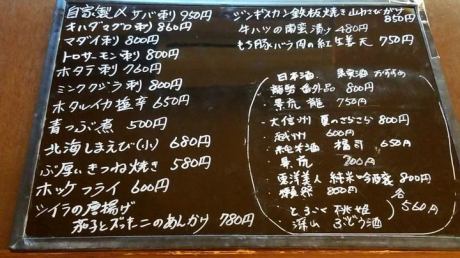 自家製〆サバ刺 950円
キハダマグロ刺 860円
マダイ刺 800円
トロサーモン刺 800円
ホタテ刺 760円
ミンククジラ刺 800円
ホタルイカ塩辛 650円
青つぶ煮 500円
北海しまえび(小) 680円
ぶ厚いきつね焼き 580円
ホッケフライ 600円
シイラの唐揚げ
茄子とズッキーニのあんかけ 780円
ジンギスカン鉄板焼き山わさびがけ
850円
牛ハツの 漬け 480円
もち豚バラ肉の紅生姜天 750円
日本酒 果実酒 おすすめ
番外品 800円
750円
大信州 夏のさらさら 800円
越州 600円
純米酒 福司 650円
700円
東洋美人 純米吟醸 800円
獺祭 800円
とろこく 桃姫
深山 ぶどう酒
各
560円